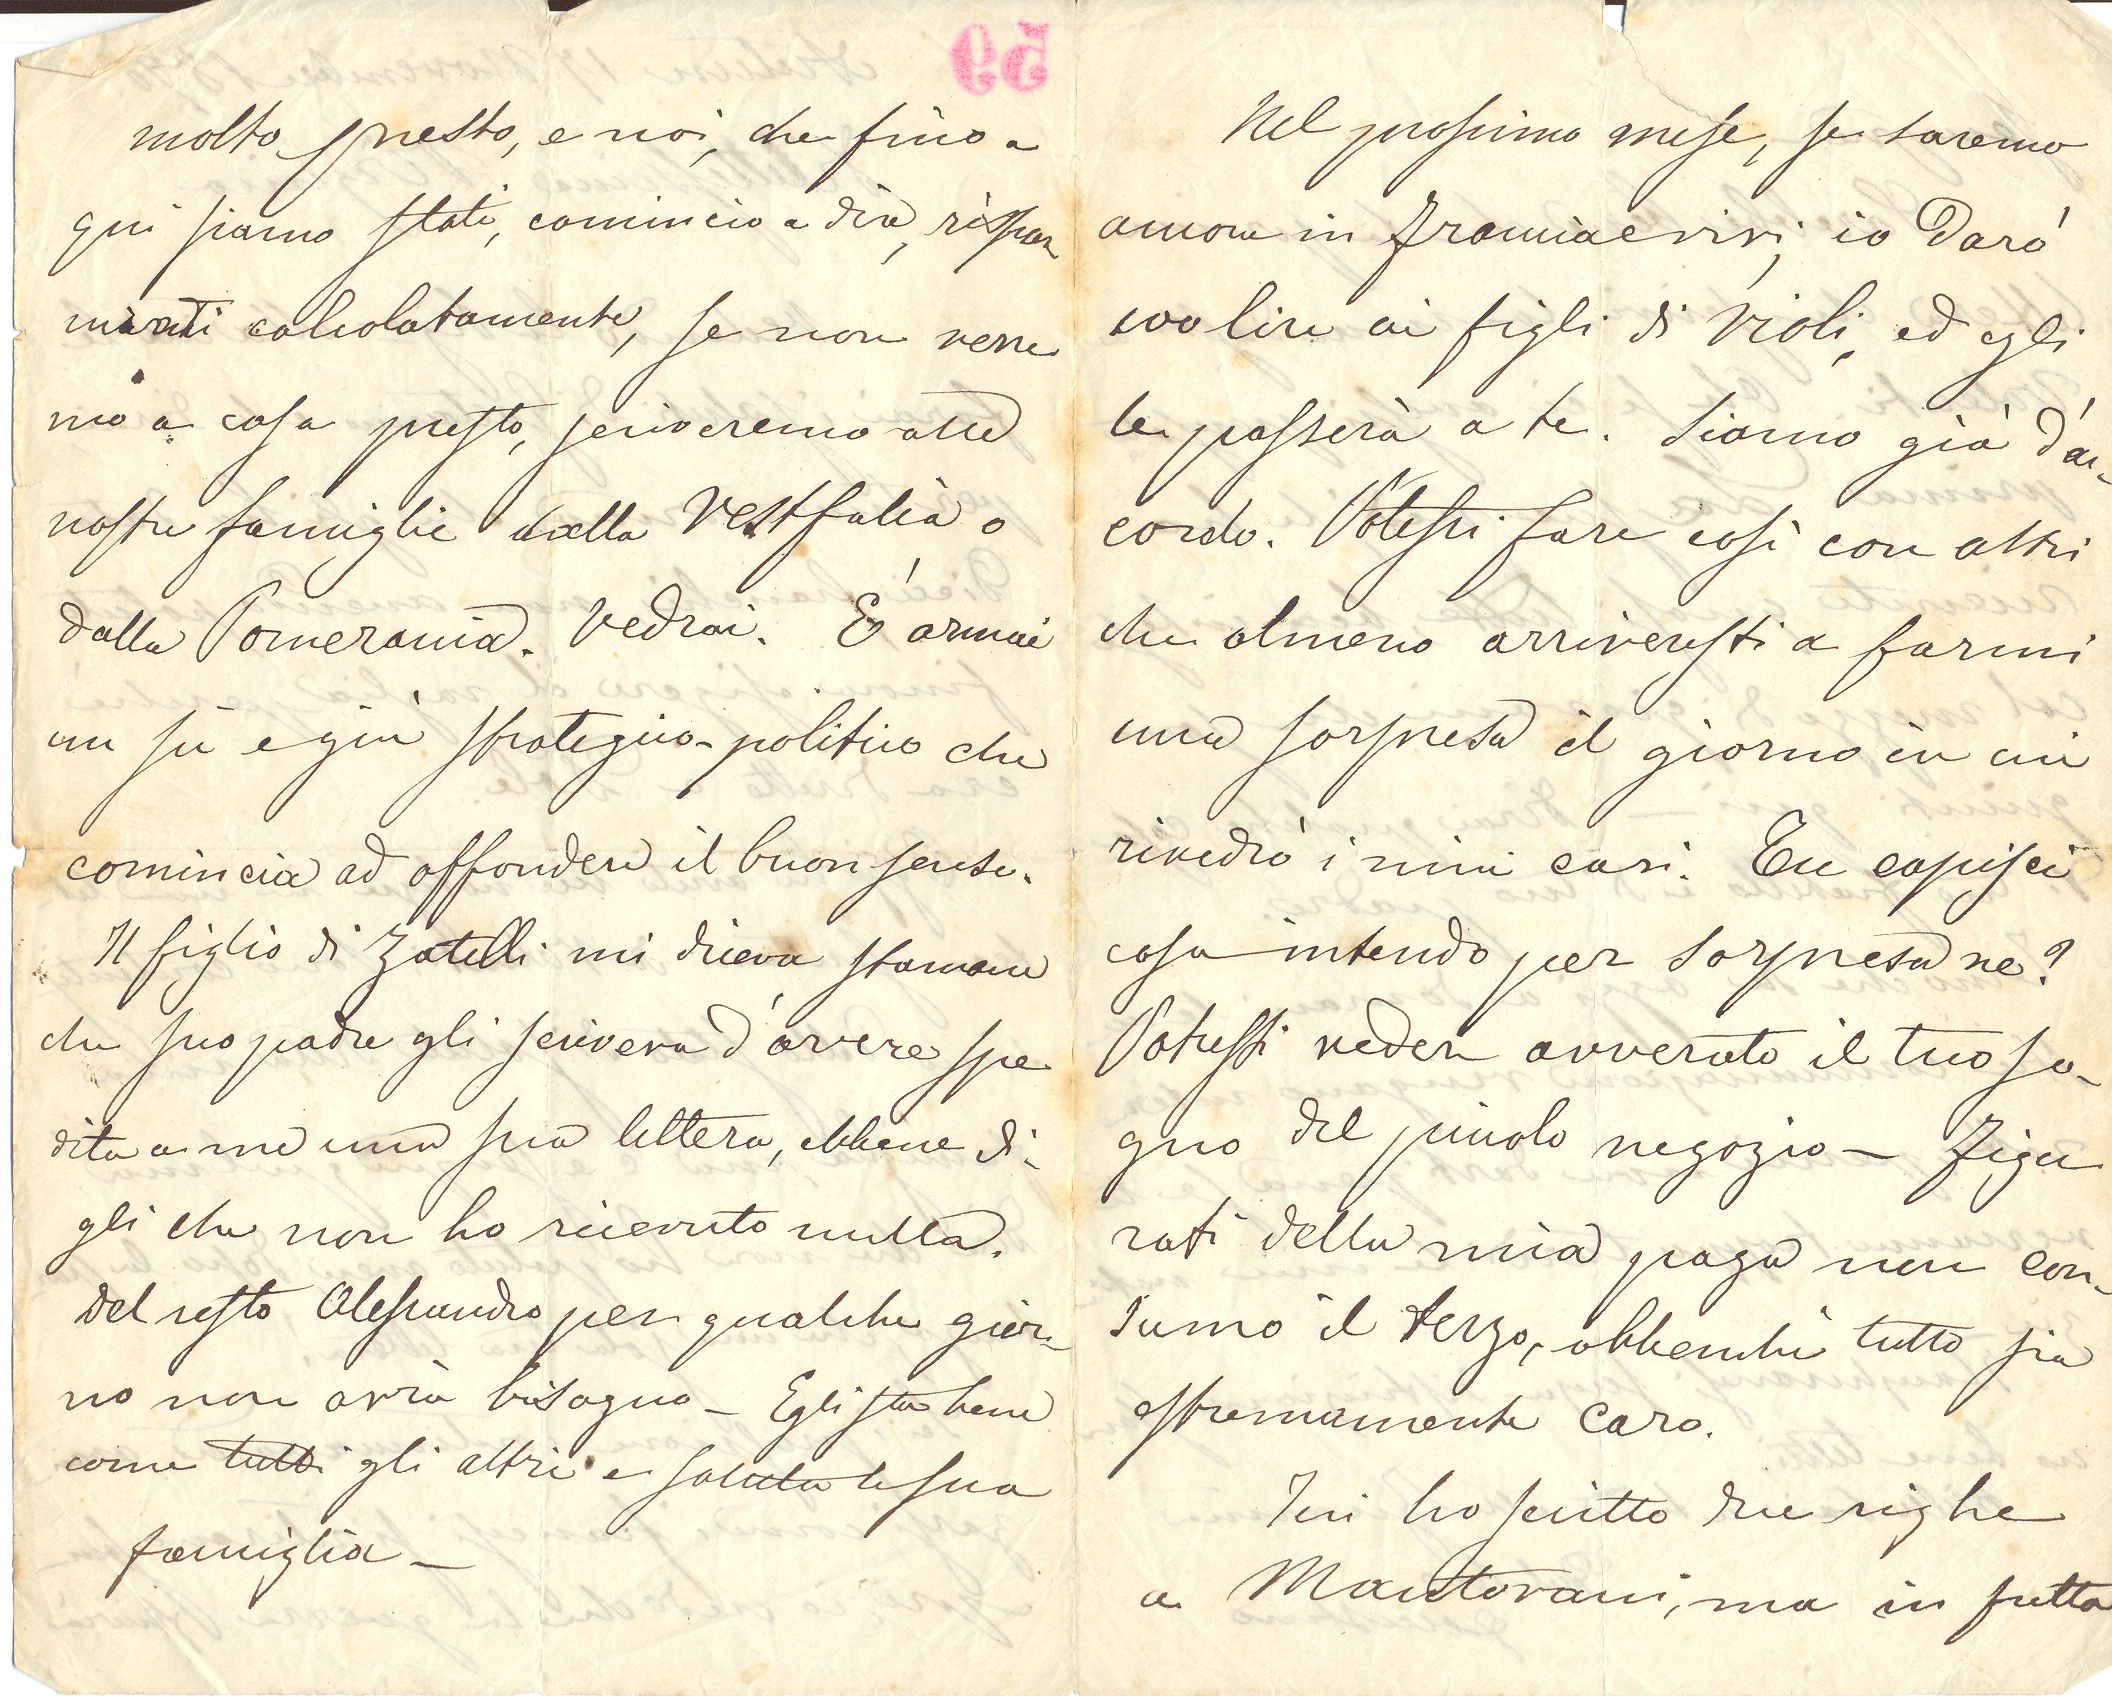 molto presto, e noi, che fino a
qui siamo stati, comincio a dire, rispar
miati calcolatamente, se non verre
mo a casa presto, scriveremo alle
nostre famiglie dalla Vestfalia o
dalla Pomerania. Vedrai. É ormai
un sù e giù strategico-politico che
comincia ad offendere il buon senso.
Il figlio di Zatelli mi diceva stamane
che suo padre gli scriveva d'avere spe
dita a me una sua lettera, ebbene di-
gli che non ho ricevuto nulla.
Del resto Alessandro per qualche gior-
no non avrà bisogno - Egli sta bene
come tutti gli altri e saluta la sua
famiglia -
Nel prossimo mese, se saremo
ancora in Francia e vivi, io darò
100 lire ai figli di Violi, ed egli
le passerà a te. Siamo già d'ac-
cordo. Potessi fare così con altri
che almeno arriveresti a farmi
una sorpresa il giorno in cui
rivedrò i miei cari. Tu capisci
cosa intendo per sorpresa ne?
Potessi veder avverato il tuo so-
gno del piccolo negozio - Figu
rati della mia paga non con-
sumo il terzo, abbenchè tutto sia
estremamente caro.
Ieri ho scritto due righe
a Mantovani, ma in fretta
59